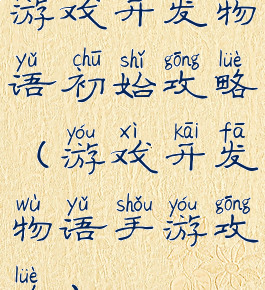 游戏开发物
yǔ chū shǐ gōng lüè
语初始攻略
yóu xì kāi fā
(游戏开发
wù yǔ shǒu yóu gōng
物语手游攻
lüè